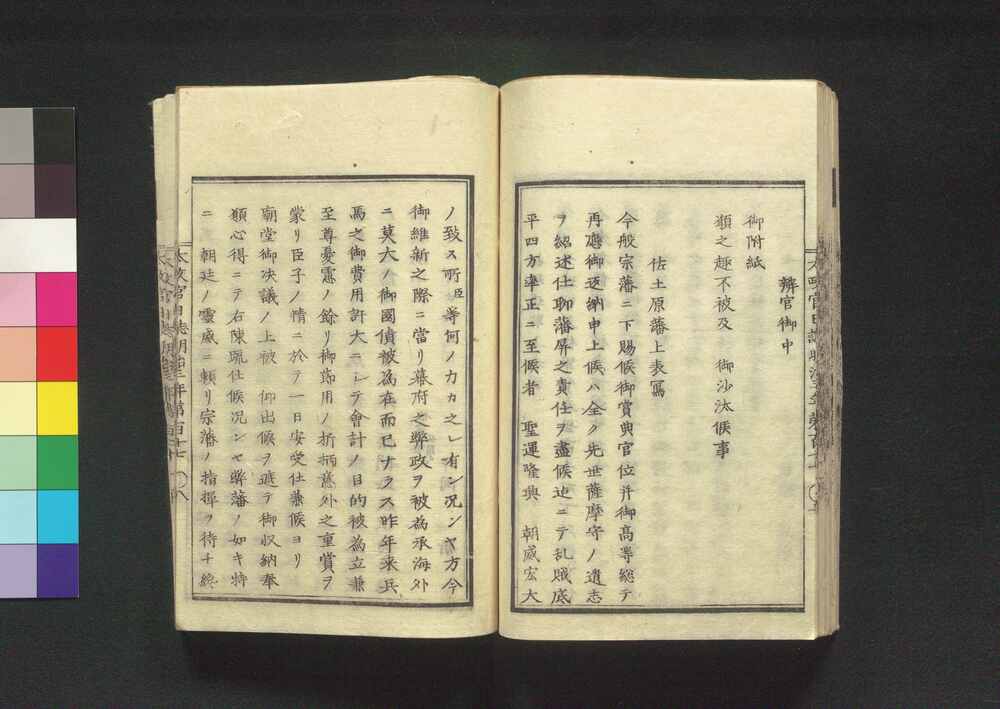 辨官御中
御附紙
願之趣不被及　御沙汰候事
佐土原藩上表寫
今般宗藩ニ下賜候御賞典官位并御高等総テ
再應御返納申上候ハ全ク先世薩摩守ノ遺志
ヲ紹述仕聊藩屏之責任ヲ盡候迠ニテ乱賊底
平四方率正ニ至候者　聖運隆興　朝威宏大
ノ致ス所臣等何ノ力カ之レ有ン况ンヤ方今
御維新之際ニ當リ幕府之弊政ヲ被為承海外
ニ莫大ノ御國債被為在而已ナラス昨年来兵
馬之御費用許大ニシテ會計ノ目的被為立兼
至尊憂慮ノ餘リ御節用ノ折柄意外之重賞ヲ
蒙リ臣子ノ情ニ於テ一日安受仕兼候ヨリ
廟堂御决議ノ上被　仰出候ヲ遮テ御収納奉
願心得ニテ右陳疏仕候况ンヤ弊藩ノ如キ特
ニ　朝廷ノ霊威ニ頼リ宗藩ノ指揮ヲ待チ終